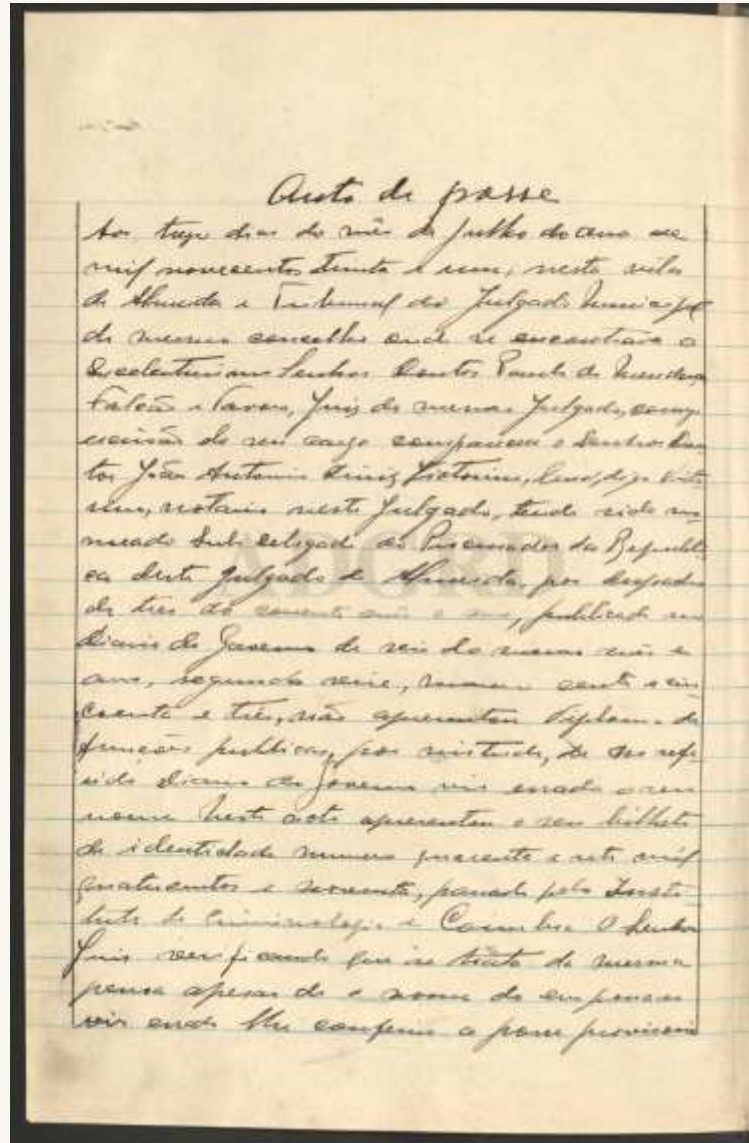 Auto de posse
Aos treze dias do mês de Julho do ano de
mil novecentos trinta e um, nesta vila
de Almeida e Tribunal do Julgado Municipal
do mesmo concelho onde se encontrava o
Excelentissimo Senhor Doutor de
Falcão e Tavares, Juiz do mesmo Julgado, comigo
escrivão do seu cargo compareceu o Senhor Dou
tor João Antonio Diniz digo
notario neste Julgado, tendo sido no
meado Sub delegado do Procurador da Republi
ca deste Julgado de Almeida, por despacho
de tres do corrente mês e ano, publicado no
Diario do Governo de seis do mesmo mês e
ano, segunda serie, numero cento e cin
coenta e três, não apresentou diploma de
funções publicas, por virtude de no refe
rido Diario do Governo vir errado o seu
nome Neste acto apresentou o seu bilhete
de identidade numero quarenta e sete mil
quatrocentos e noventa, passado pelo Insti
tuto de Criminologia de Coimbra O Senhor
Juiz verificando que se trata da mesma
pessoa apesar de o nome do empossado
vir errado lhe conferiu a posse provisoria
ADGRD